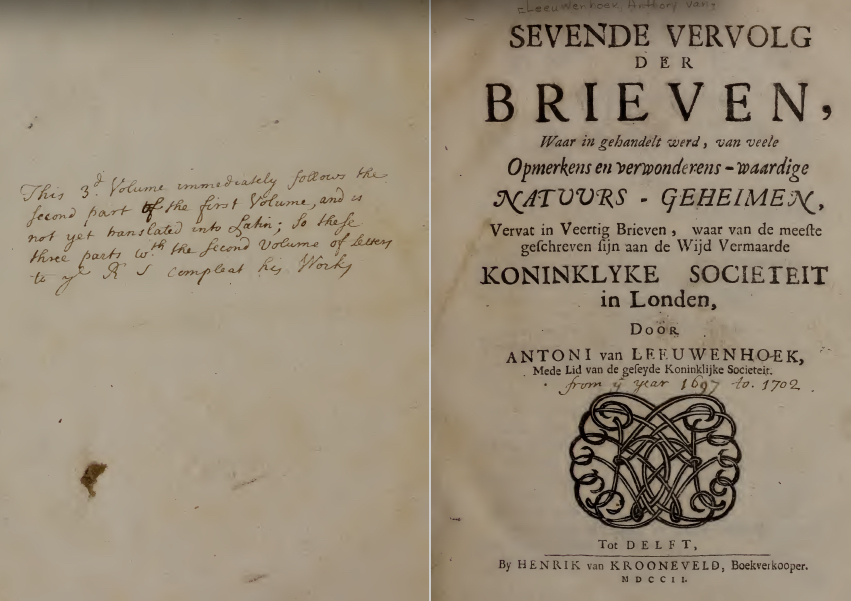 This 3.d Volume immediately follows the
second part of the first Volume, and is
not yet translated into Latin; So these
three parts w.th the second Volume of letters
to y.e R S compleat his Works
Leeuwenhoek, Anthony van
SEVENDE VERVOLG
DER
BRIEVEN,
Waar in gehandelt werd, van veele
Opmerkens en verwonderens-waardige
NATUURS-GEHEIMEN,
Vervat in Veertig Brieven, waar van de meeſte
geſchreven ſijn aan de Wijd Vermaarde
KONINKLYKE SOCIETEIT
in Londen,
DOOR
ANTONI van LEEUWENHOEK,
Mede Lid van de geſeyde Koninklijke Societeit.
from y.e year 1697 to. 1702
Tot DELFT,
By HENRIK van KROONEVELD, Boekverkooper.
MDCCII.